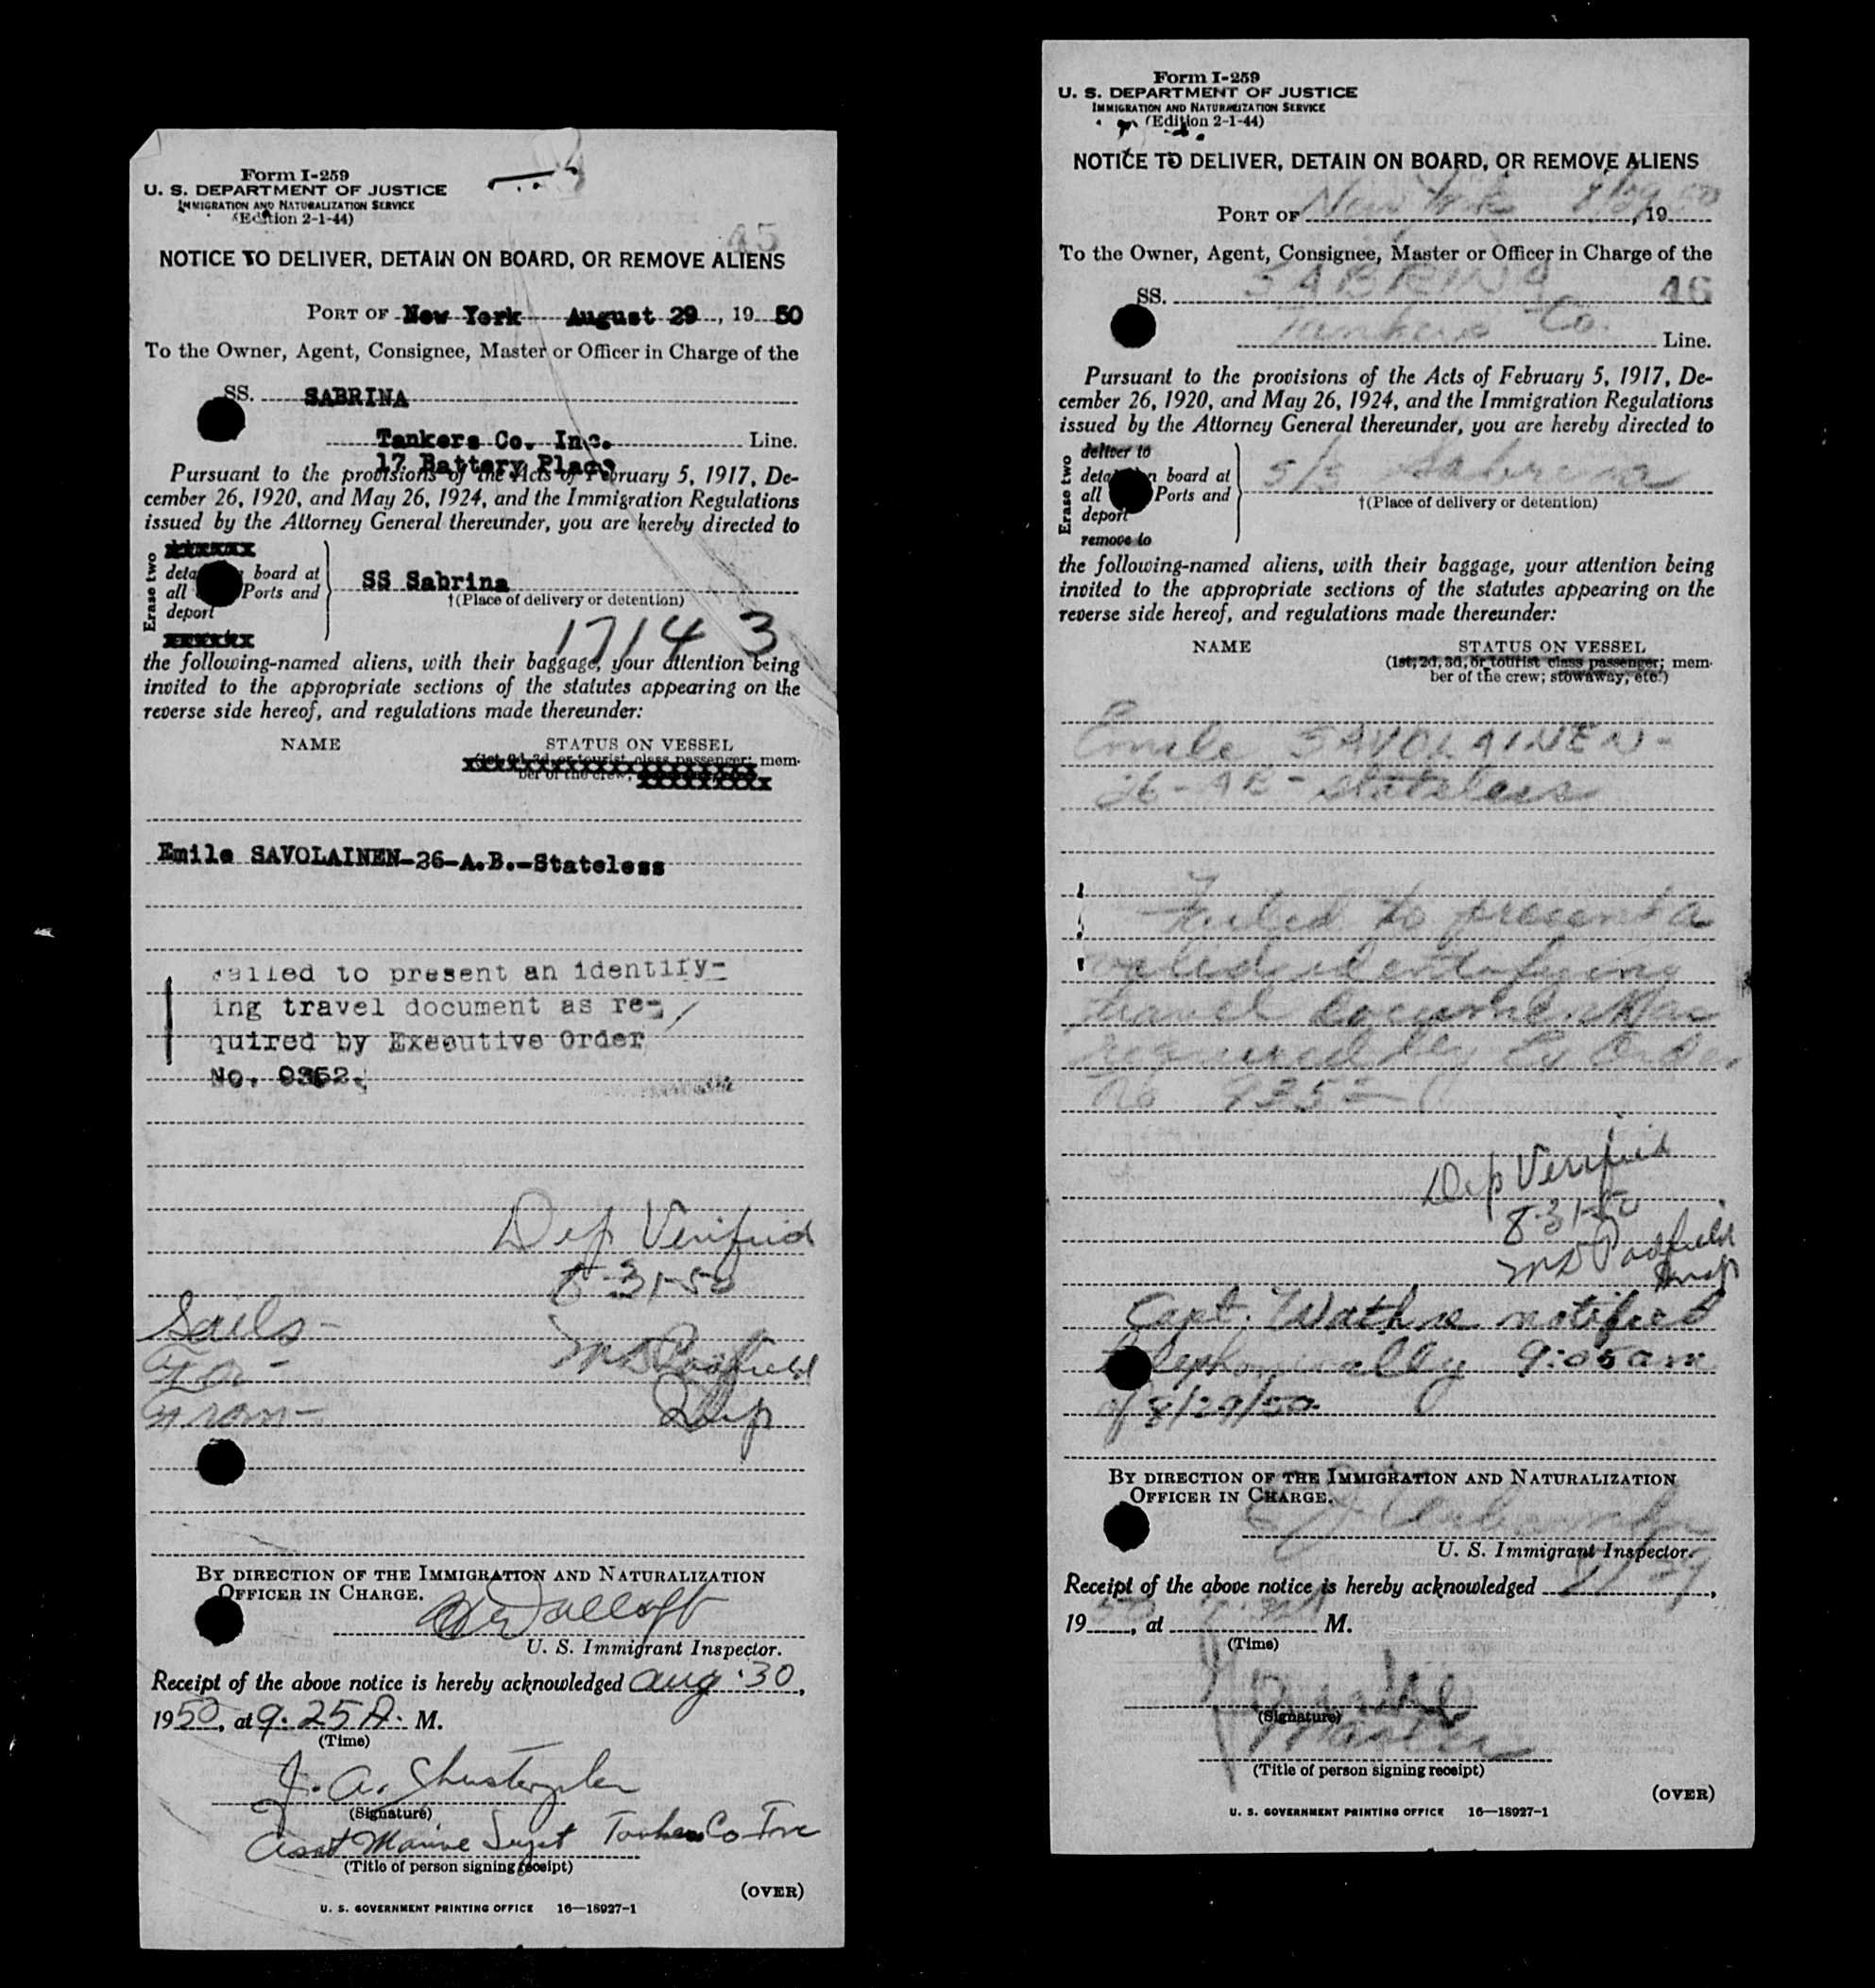 Form I-259
U. S. DEPARTMENT OF JUSTICE
IMMIGRATION AND NATURALIZATION SERVICE
(Edition 2-1-44)
45
NOTICE TO DELIVER, DETAIN ON BOARD, OR REMOVE ALIENS
PORT OF New York August 29, 19 50
To the Owner, Agent, Consignee, Master or Officer in Charge of the
SS. SABRINA
Tankers Co. Inc. Line.
17 Battery Place
Pursuant to the provisions of the Acts of February 5, 1917, De-
cember 26, 1920, and May 26, 1924, and the Immigration Regulations
issued by the Attorney General thereunder, you are hereby directed to
Erase two
xxxxxx
board at
all Ports and
deport
xxxxxx
SS Sabrina
†(Place of delivery or detention)
1714 3
the following-named aliens, with their baggage, your attention being
invited to the appropriate sections of the statutes appearing on the
reverse side hereof, and regulations made thereunder:
NAME STATUS ON VESSEL
(1st, 2d, 3d, or tourist class passenger; mem-
ber of the crew;
Emile SAVOLAINEN-26-A.B.-Stateless
Failed to present an identify-
ing travel document as re-
quired by Executive Order
No. 9352.
Dep Verified
8-31-50
Sails-
For-
From-
MD Padfield
Insp
BY DIRECTION OF THE IMMIGRATION AND NATURALIZATION
OFFICER IN CHARGE.
U. S. Immigrant Inspector.
Receipt of the above notice is hereby acknowledged Aug. 30,
1950, at 9.25 A. M.
(Time)
J. A.
(Signature)
Asst Marine Supt Tankers Co Inc
(Title of person signing receipt)
(OVER)
U. S. GOVERNMENT PRINTING OFFICE 16—18927-1
Form I-259
U. S. DEPARTMENT OF JUSTICE
IMMIGRATION AND NATURALIZATION SERVICE
(Edition 2-1-44)
NOTICE TO DELIVER, DETAIN ON BOARD, OR REMOVE ALIENS
PORT OF New York 8/29, 19 50
To the Owner, Agent, Consignee, Master or Officer in Charge of the
SS. SABRINA 46
Tankers Co. Line.
Pursuant to the provisions of the Acts of February 5, 1917, De-
cember 26, 1920, and May 26, 1924, and the Immigration Regulations
issued by the Attorney General thereunder, you are hereby directed to
Erase two
deliver to
board at
all Ports and
deport
remove to
s/s Sabrina
†(Place of delivery or detention)
the following-named aliens, with their baggage, your attention being
invited to the appropriate sections of the statutes appearing on the
reverse side hereof, and regulations made thereunder:
NAME STATUS ON VESSEL
(1st, 2d, 3d, or tourist class passenger; mem-
ber of the crew; stowaway, etc.)
Emile SAVOLAINEN-
26-AB-Stateless
Failed to present a
valid identifying
travel document as
required by Ex Order
No 9352
Dep Verified
8-31-50
MD Padfield
Insp
Capt. notified
telephonically 9:05 am
of 8/29/50.
BY DIRECTION OF THE IMMIGRATION AND NATURALIZATION
OFFICER IN CHARGE.
U. S. Immigrant Inspector.
Receipt of the above notice is hereby acknowledged 8/29,
19 50, at M.
(Time)
(Signature)
Master
(Title of person signing receipt)
(OVER)
U. S. GOVERNMENT PRINTING OFFICE 16—18927-1